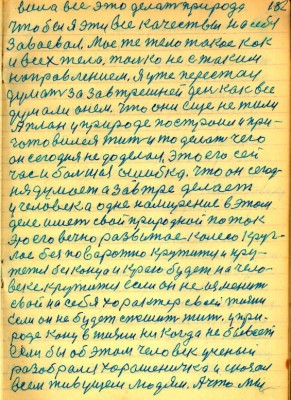 вила все это делат природа
182
чтобы я эти все качества на себя
завоевал. Мое же тело такое как
и всех тела, толко не с таким
направлением. Я уже перестал
думат за завтрешней ден как все
думали о нем. Что они еще не жили
а план у природе построили и при-
готовился жит и то делат чего
он сегодня не доделал, это его сей
час и болшая ошибка. Что он сегод-
ня думает а завтра делает
у человека одне намирение в этом
деле имет свой природной поток
это его вечно развитое колесо круг-
лое без поваротно крутит и кру-
тет без конца и краю будет на чело-
веке крутится если он не изменит
свой на себя характер своей жизни
если он не будет спешит жит. У при-
роде конц в жизни ни когда не бывает
Если бы об этом человек ученый
разобрался хорошеничка и сказал
всем живущем людям. А что мы